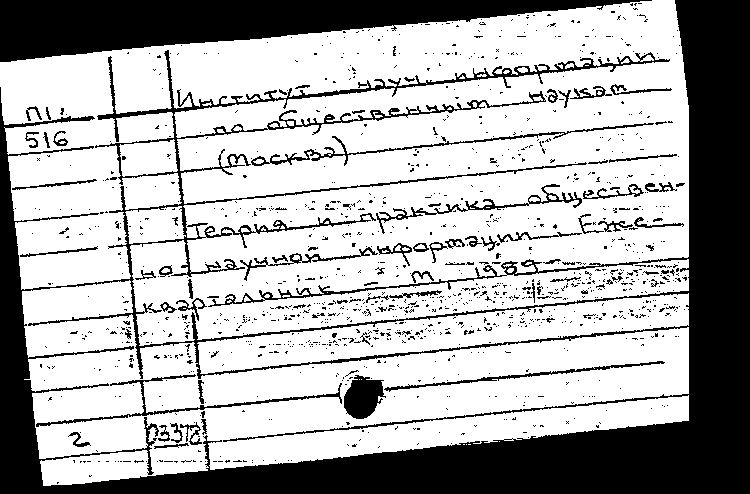 П1:
516
Институт науч. информации
по общественным наукам
(Москва)
Теория и практика обществен-
но-научной информации: Еже-
квартальник – М, 1989–
2
03378